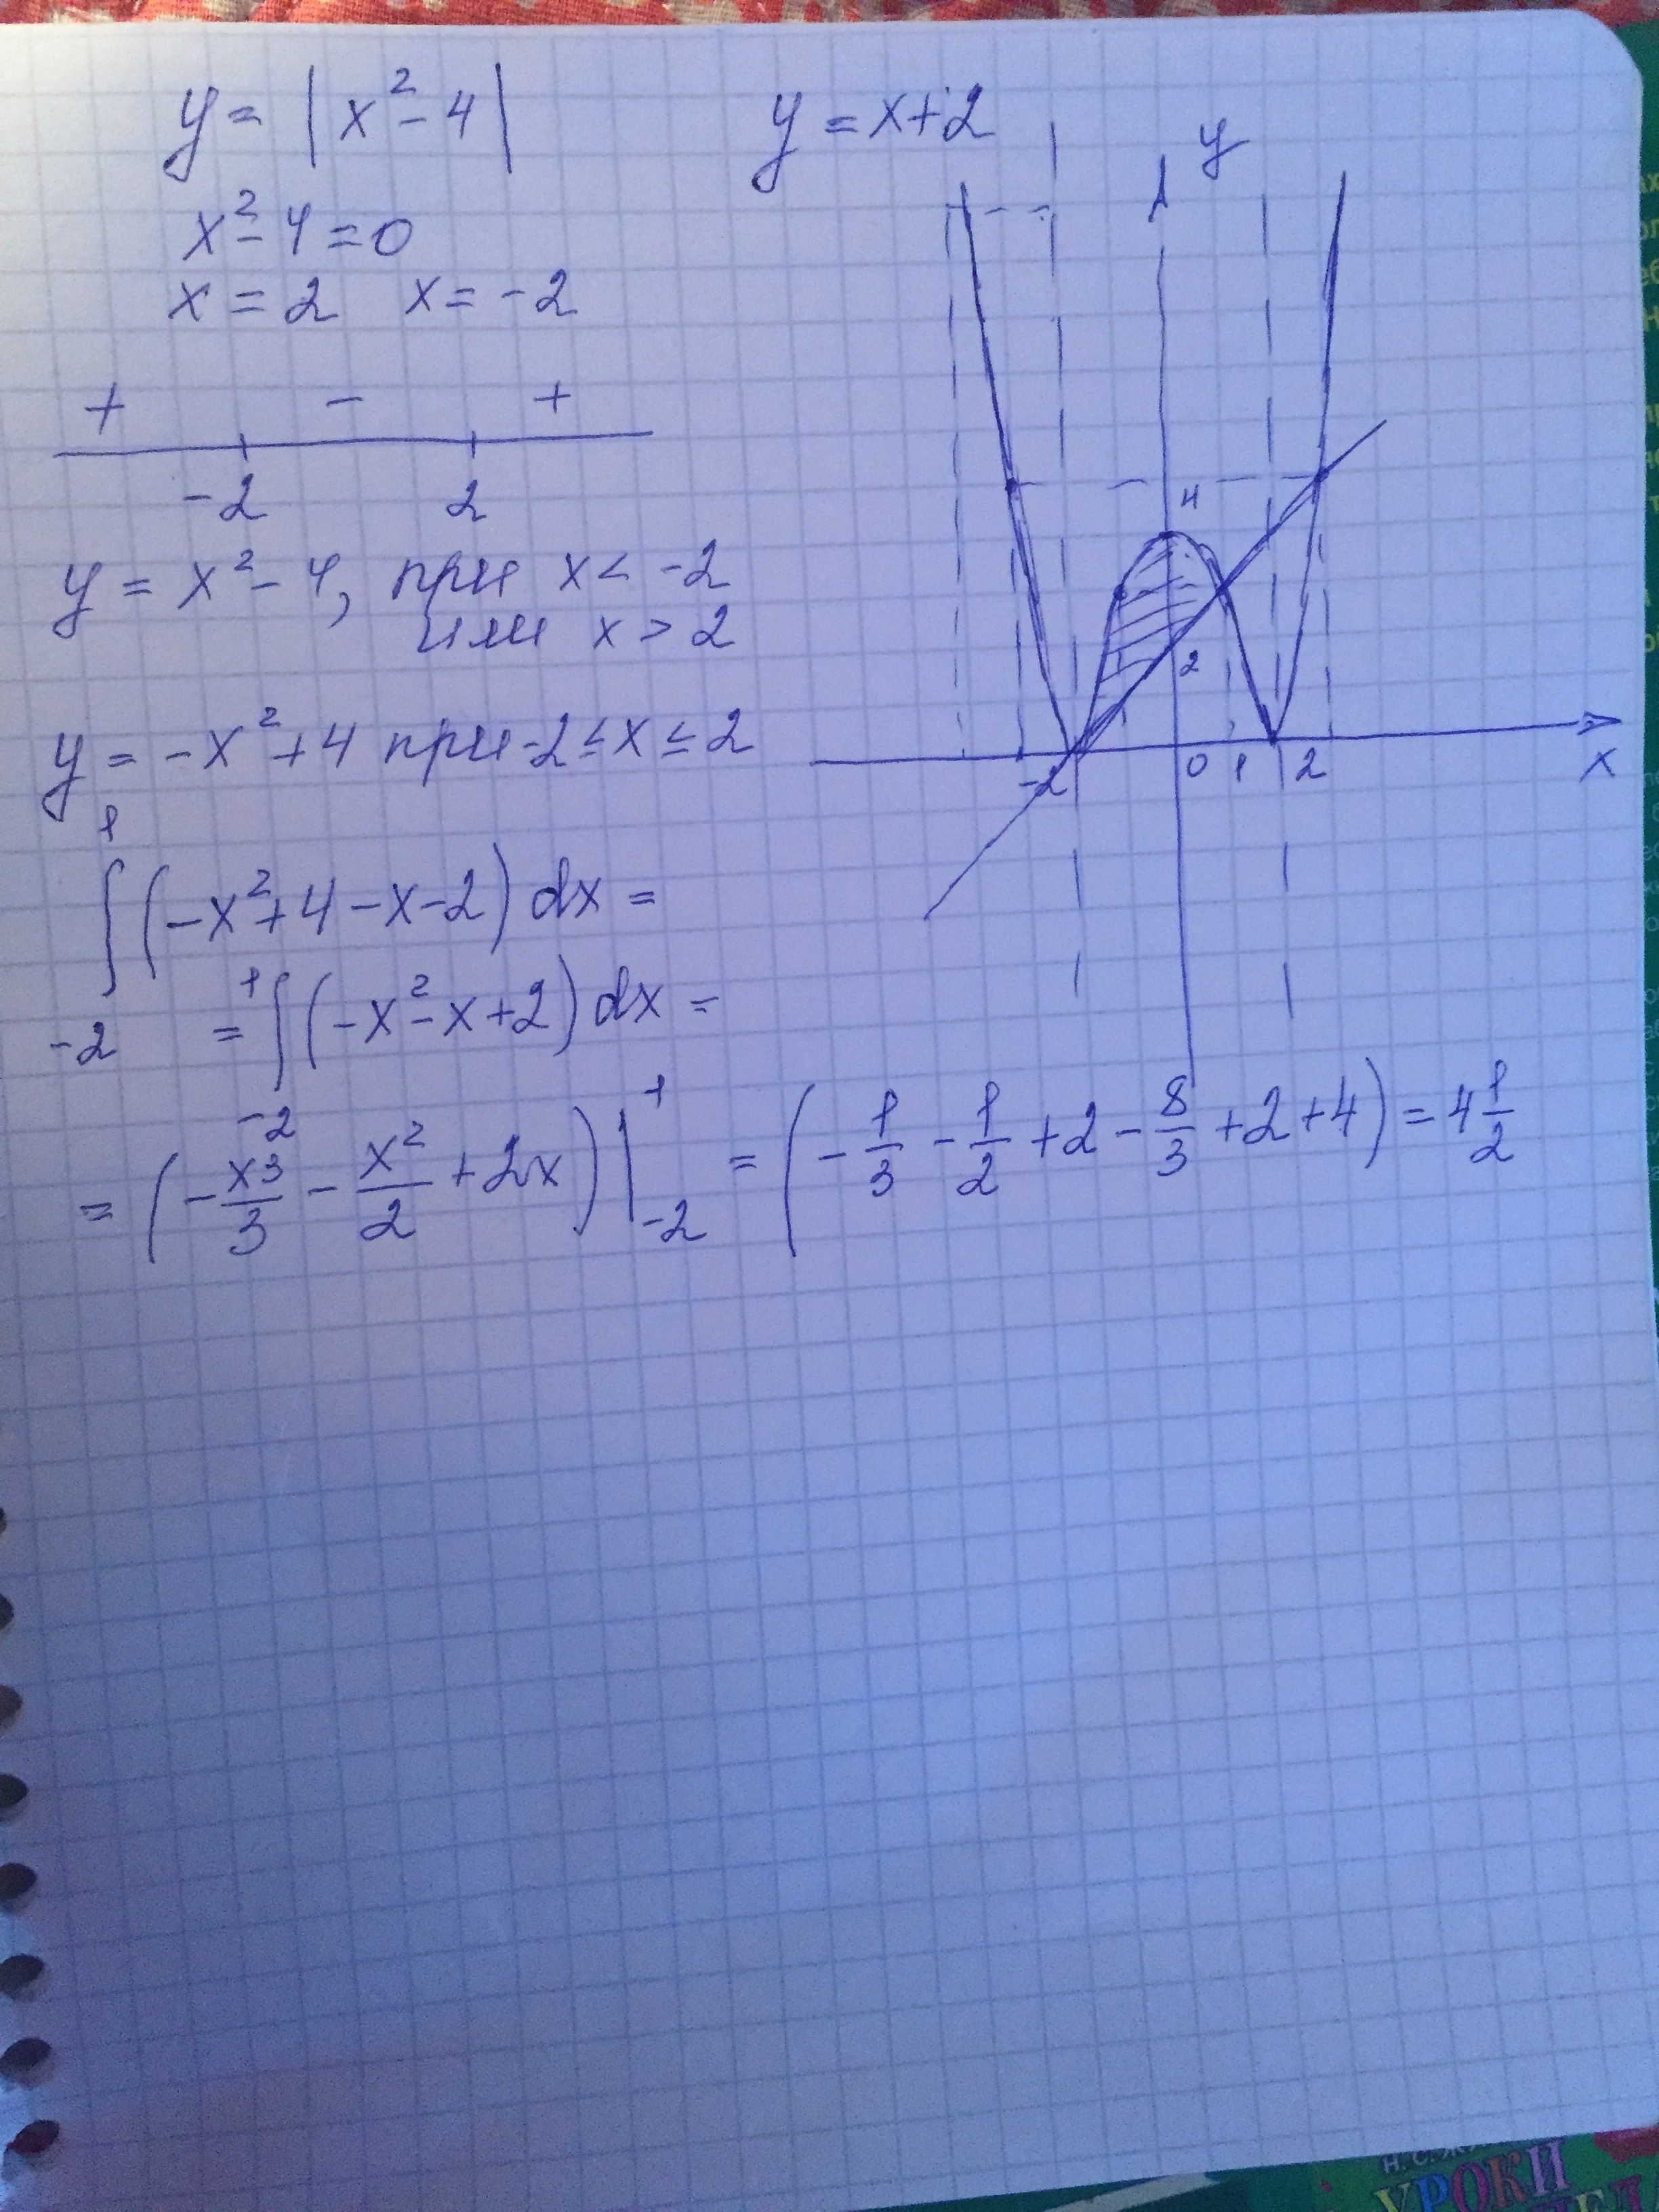 y = |x² - 4|
y = x + 2
x² - 4 = 0
x = 2 x = -2
+ - +
-2 2
y = x² - 4, при x < -2
или x > 2
y = -x² + 4 при -2 ≤ x ≤ 2
y
4
2
-2 0 1 2
x
1
∫ (-x² + 4 - x - 2) dx =
-2
1
= ∫ (-x² - x + 2) dx =
-2
= (-x³/3 - x²/2 + 2x) |₋₂¹ = (-1/3 - 1/2 + 2 - 8/3 + 2 + 4) = 4 1/2
УРОКИ